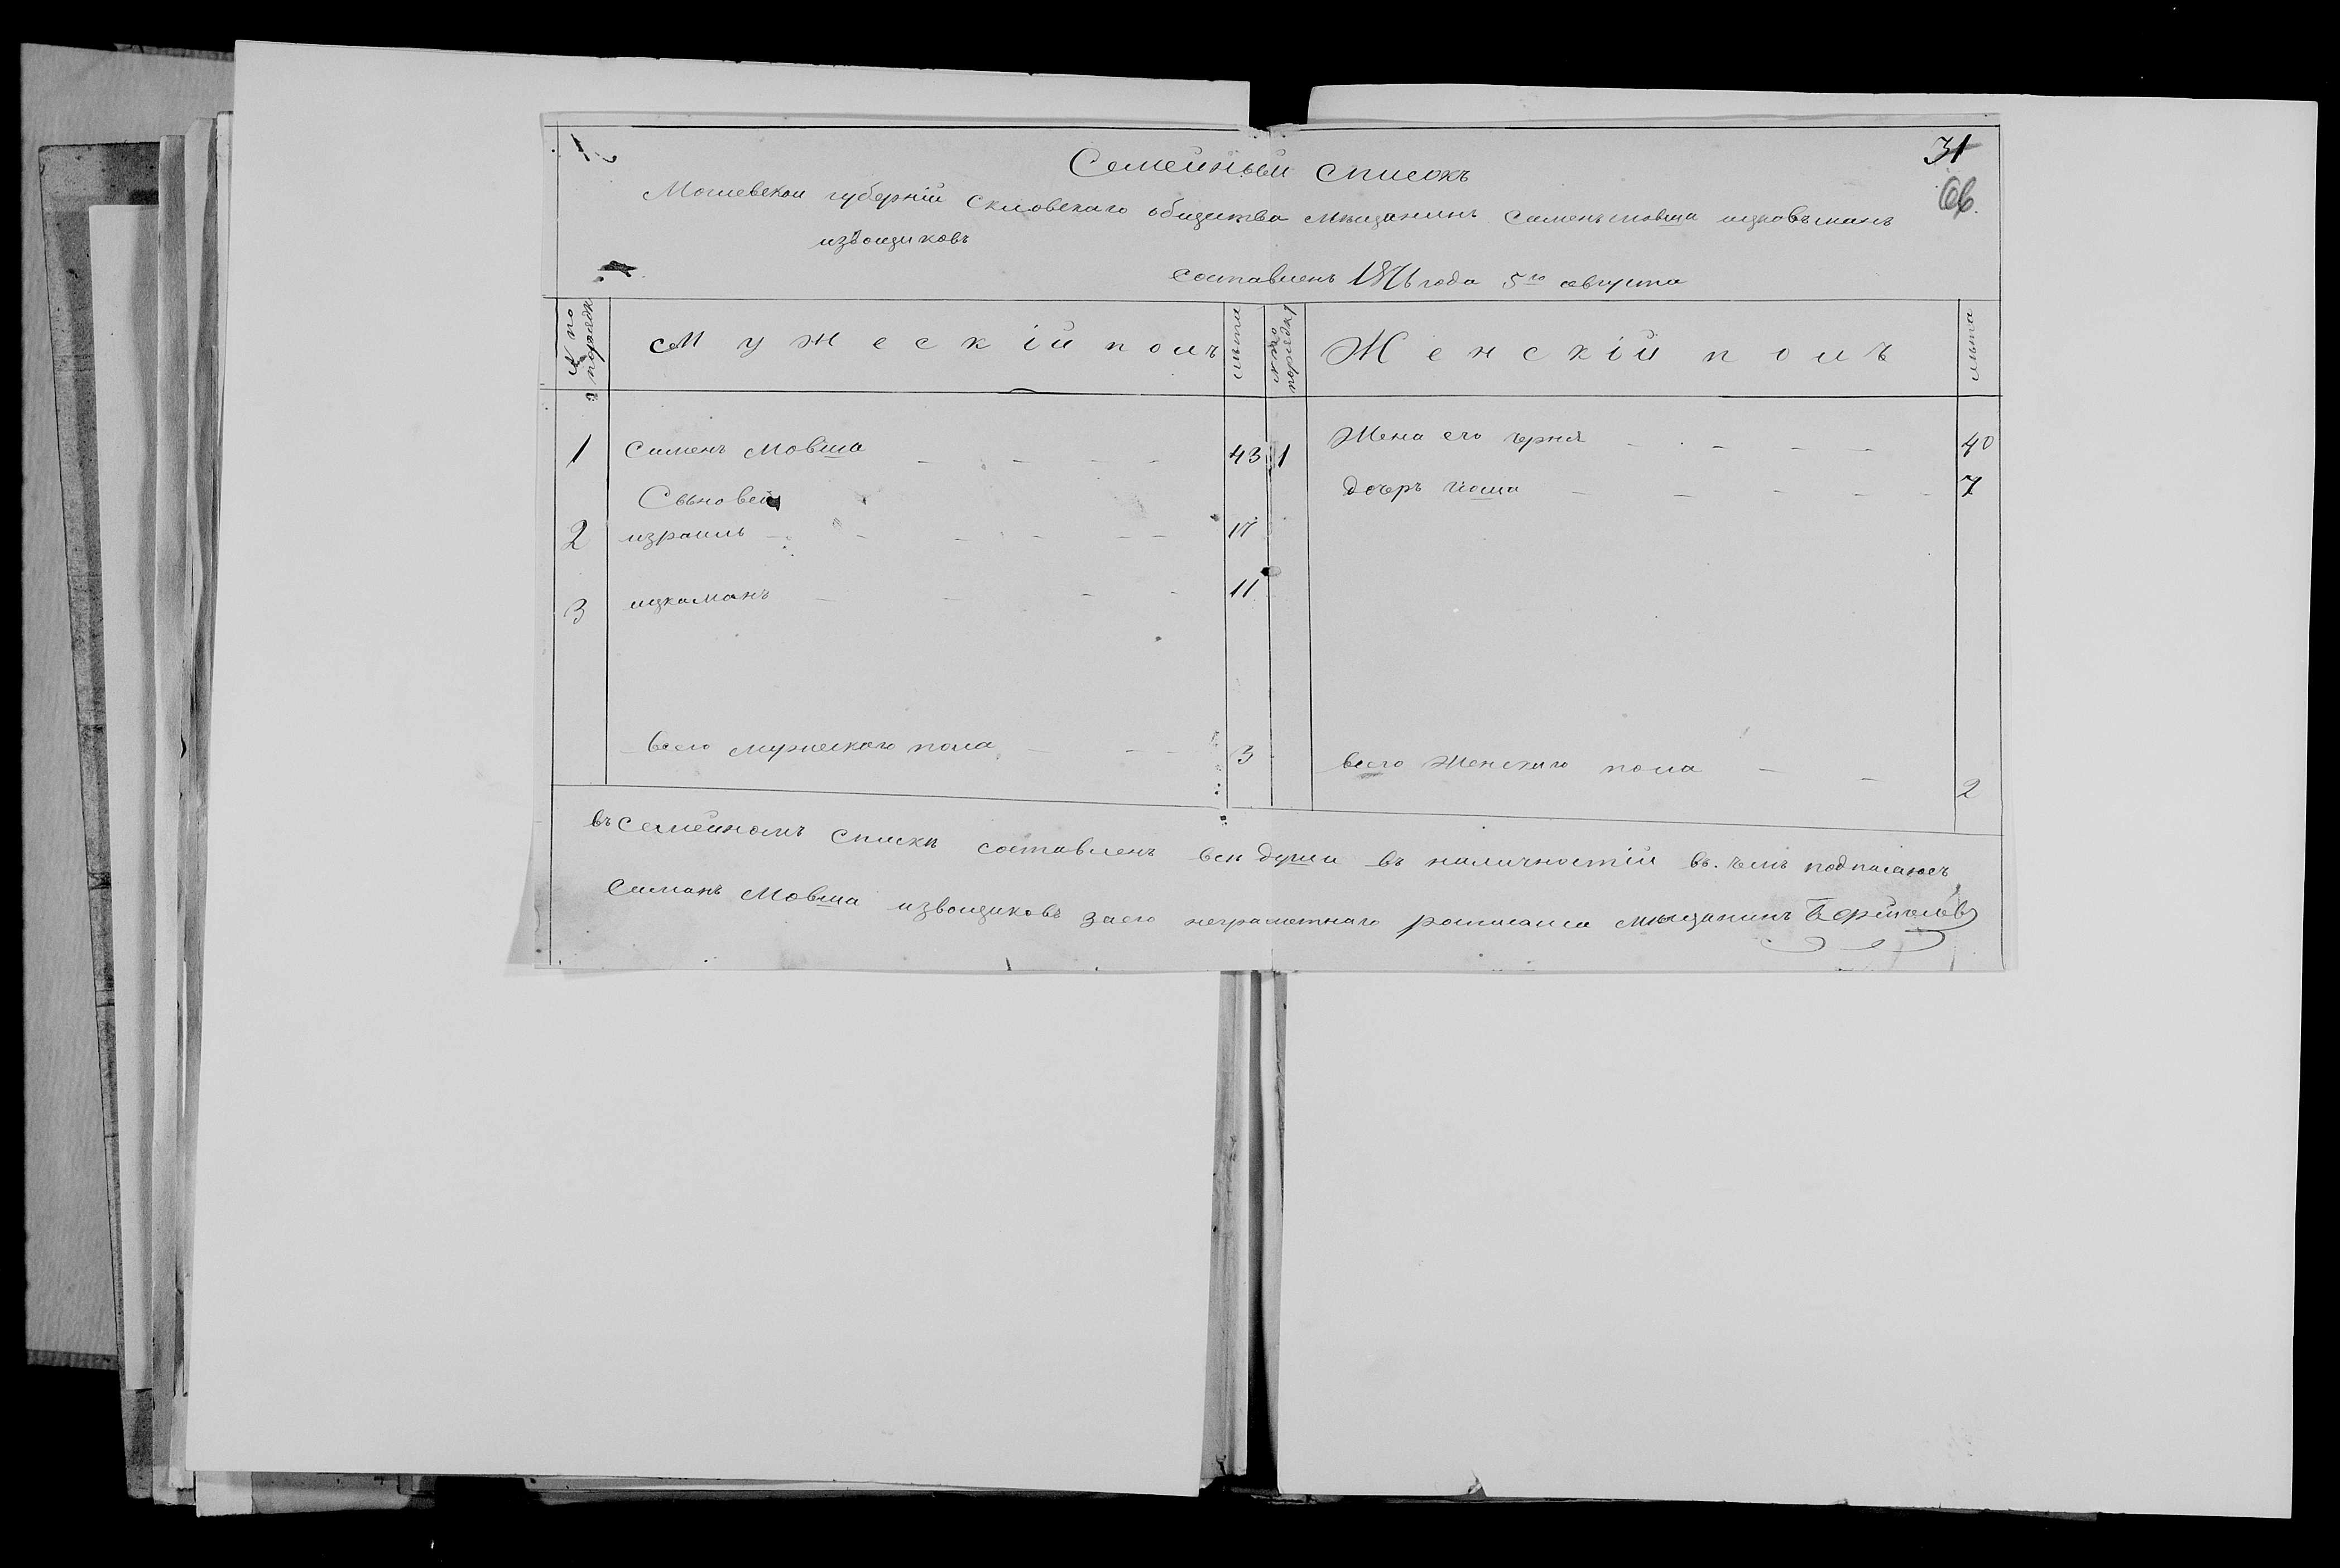 31
66.
Семейный списокъ
Могилевской губерніи Скловскаго общества мѣщанинъ Сименъ мовша ицковъ манъ
извощиковъ
составленъ 1876 года 5го августа
№ по порядку Мужескій полъ лѣта № по порядку Женскій полъ лѣта
1 Сименъ Мовша 43 1 Жена его черня 40
Сыновей дочеръ йоша 7
2 израиль 17
3 ицкаманъ 11
всего мужескаго пола 3 всего Женскаго пола 2
въ семейномъ списки составленъ всѣ души въ наличностій въ. чемъ подписаюсъ
Симанъ Мовша извощиковъ заего неграмотнаго росписался мѣщанинъ